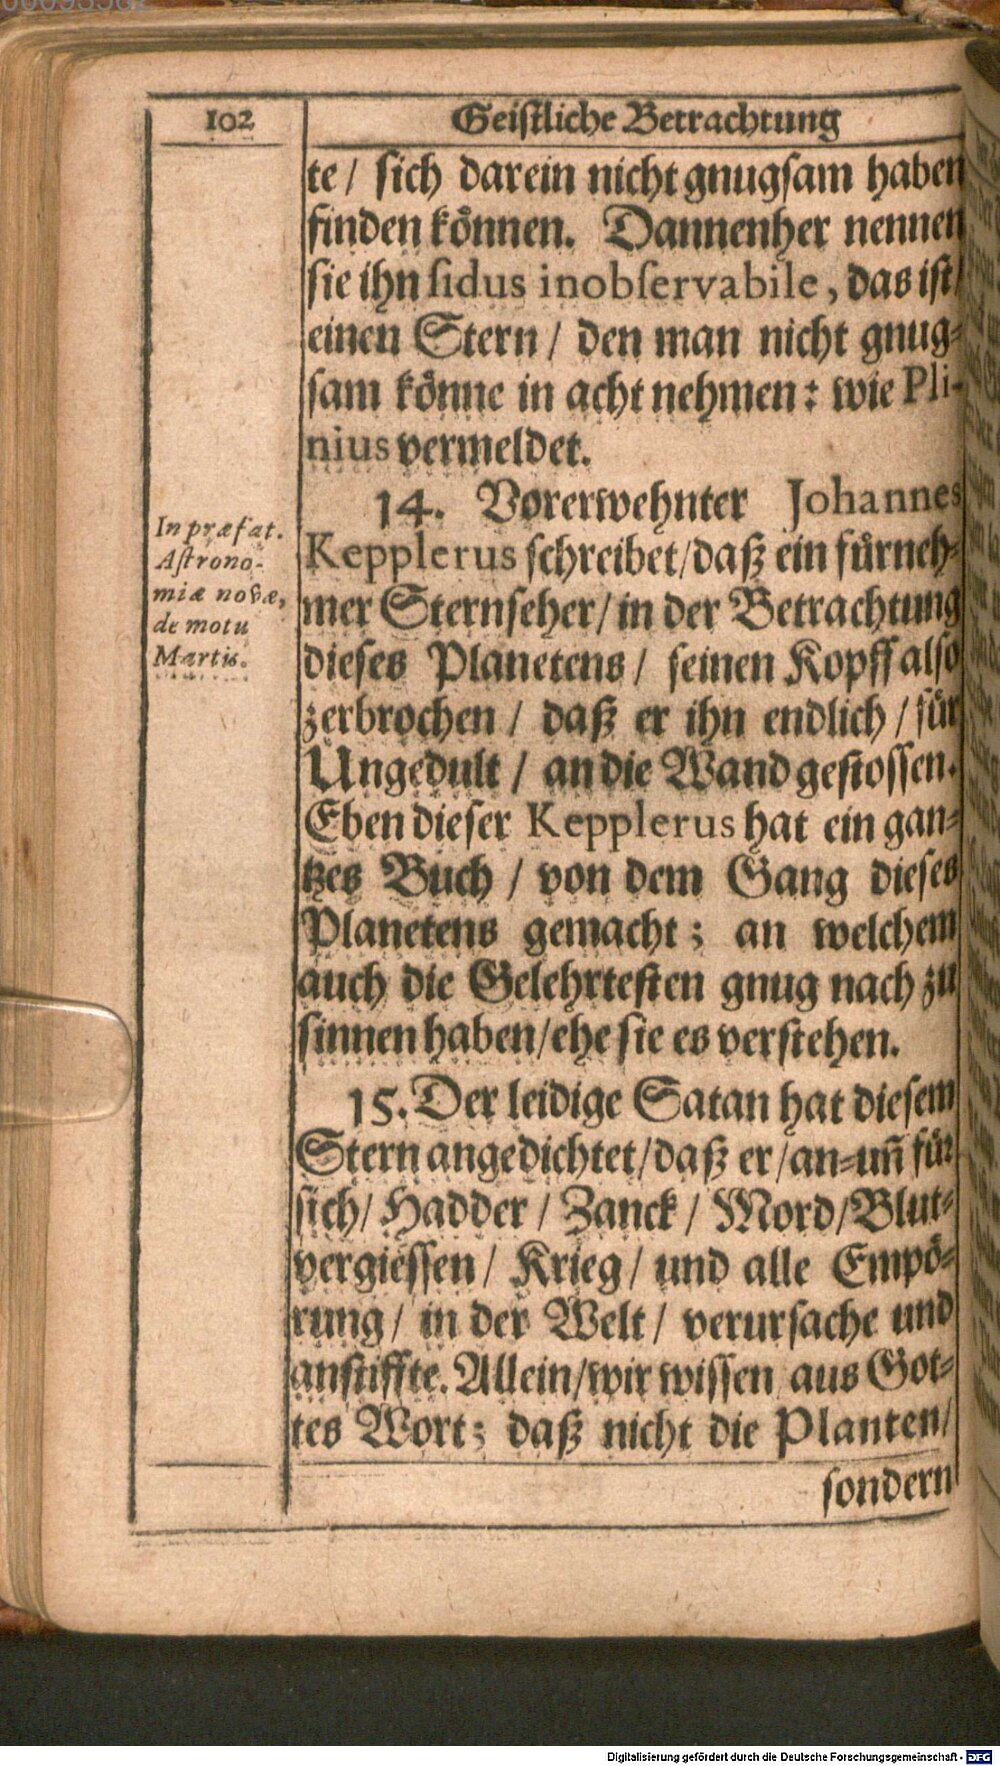 102
Geistliche Betrachtung
te / sich darein nicht gnugsam haben
finden können. Dannenher nennen
sie ihn sidus inobservabile, das ist /
einen Stern / den man nicht gnug-
sam könne in acht nehmen: wie Pli-
nius vermeldet.
In præfat.
Astrono-
miæ novæ,
de motu
Martis.
14. Vorerwehnter Johannes
Kepplerus schreibet / daß ein fürneh-
mer Sternseher / in der Betrachtung
dieses Planetens / seinen Kopff also
zerbrochen / daß er ihn endlich / für
Ungedult / an die Wand gestossen.
Eben dieser Kepplerus hat ein gan-
tzes Buch / von dem Gang dieses
Planetens gemacht; an welchem
auch die Gelehrtesten gnug nach zu
sinnen haben / ehe sie es verstehen.
15. Der leidige Satan hat diesem
Stern angedichtet / daß er / an-uñ für
sich / Hadder / Zanck / Mord / Blut-
vergiessen / Krieg / und alle Empö-
rung / in der Welt / verursache und
anstiffte. Allein / wir wissen aus Got-
tes Wort; daß nicht die Planten /
sondern
Digitalisierung gefördert durch die Deutsche Forschungsgemeinschaft - DFG